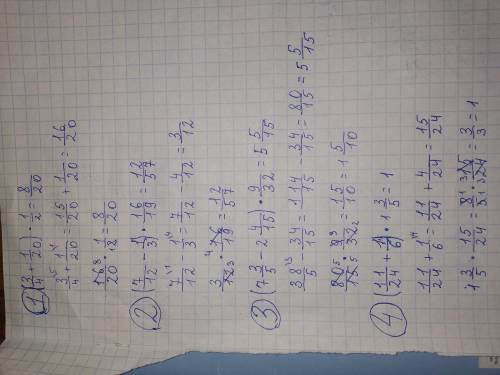 1) (3/4 + 1/20) · 1/2 = 8/20
3/4 + 1/20 = 15/20 + 1/20 = 16/20
16/20 · 1/2 = 8/20
2) (7/12 - 1/3) · 16/19 = 12/57
7/12 - 1/3 = 7/12 - 4/12 = 3/12
3/12 · 16/19 = 12/57
3) (7 3/5 - 2 4/15) · 9/32 = 5 5/15
38/5 - 34/15 = 114/15 - 34/15 = 80/15 = 5 5/15
80/15 · 9/32 = 15/10 = 1 5/10
4) (11/24 + 1/6) · 1 3/5 = 1
11/24 + 1/6 = 11/24 + 4/24 = 15/24
1 3/5 · 15/24 = 8/5 · 15/24 = 3/3 = 1